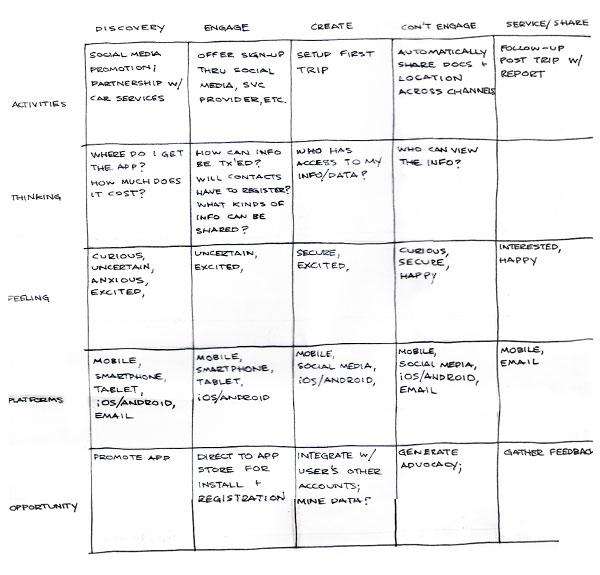 DISCOVERY ENGAGE CREATE CON'T ENGAGE SERVICE/SHARE
ACTIVITIES
SOCIAL MEDIA
PROMOTION;
PARTNERSHIP W/
CAR SERVICES
OFFER SIGN-UP
THRU SOCIAL
MEDIA, SVC
PROVIDER, ETC.
SETUP FIRST
TRIP
AUTOMATICALLY
SHARE DOCS +
LOCATION
ACROSS CHANNELS
FOLLOW-UP
POST TRIP W/
REPORT
THINKING
WHERE DO I GET
THE APP?
HOW MUCH DOES
IT COST?
HOW CAN INFO
BE TX'ED?
WILL CONTACTS
HAVE TO REGISTER?
WHAT KINDS OF
INFO CAN BE
SHARED?
WHO HAS
ACCESS TO MY
INFO/DATA?
WHO CAN VIEW
THE INFO?
FEELING
CURIOUS,
UNCERTAIN,
ANXIOUS,
EXCITED,
UNCERTAIN,
EXCITED,
SECURE,
EXCITED,
CURIOUS,
SECURE,
HAPPY
INTERESTED,
HAPPY
PLATFORMS
MOBILE,
SMARTPHONE,
TABLET,
iOS/ANDROID,
EMAIL
MOBILE,
SMARTPHONE,
TABLET,
iOS/ANDROID
MOBILE,
SOCIAL MEDIA,
iOS/ANDROID,
MOBILE,
SOCIAL MEDIA,
iOS/ANDROID,
EMAIL
MOBILE,
EMAIL
OPPORTUNITY
PROMOTE APP
DIRECT TO APP
STORE FOR
INSTALL +
REGISTRATION
INTEGRATE W/
USER'S OTHER
ACCOUNTS;
MINE DATA?
GENERATE
ADVOCACY;
GATHER FEEDBACK